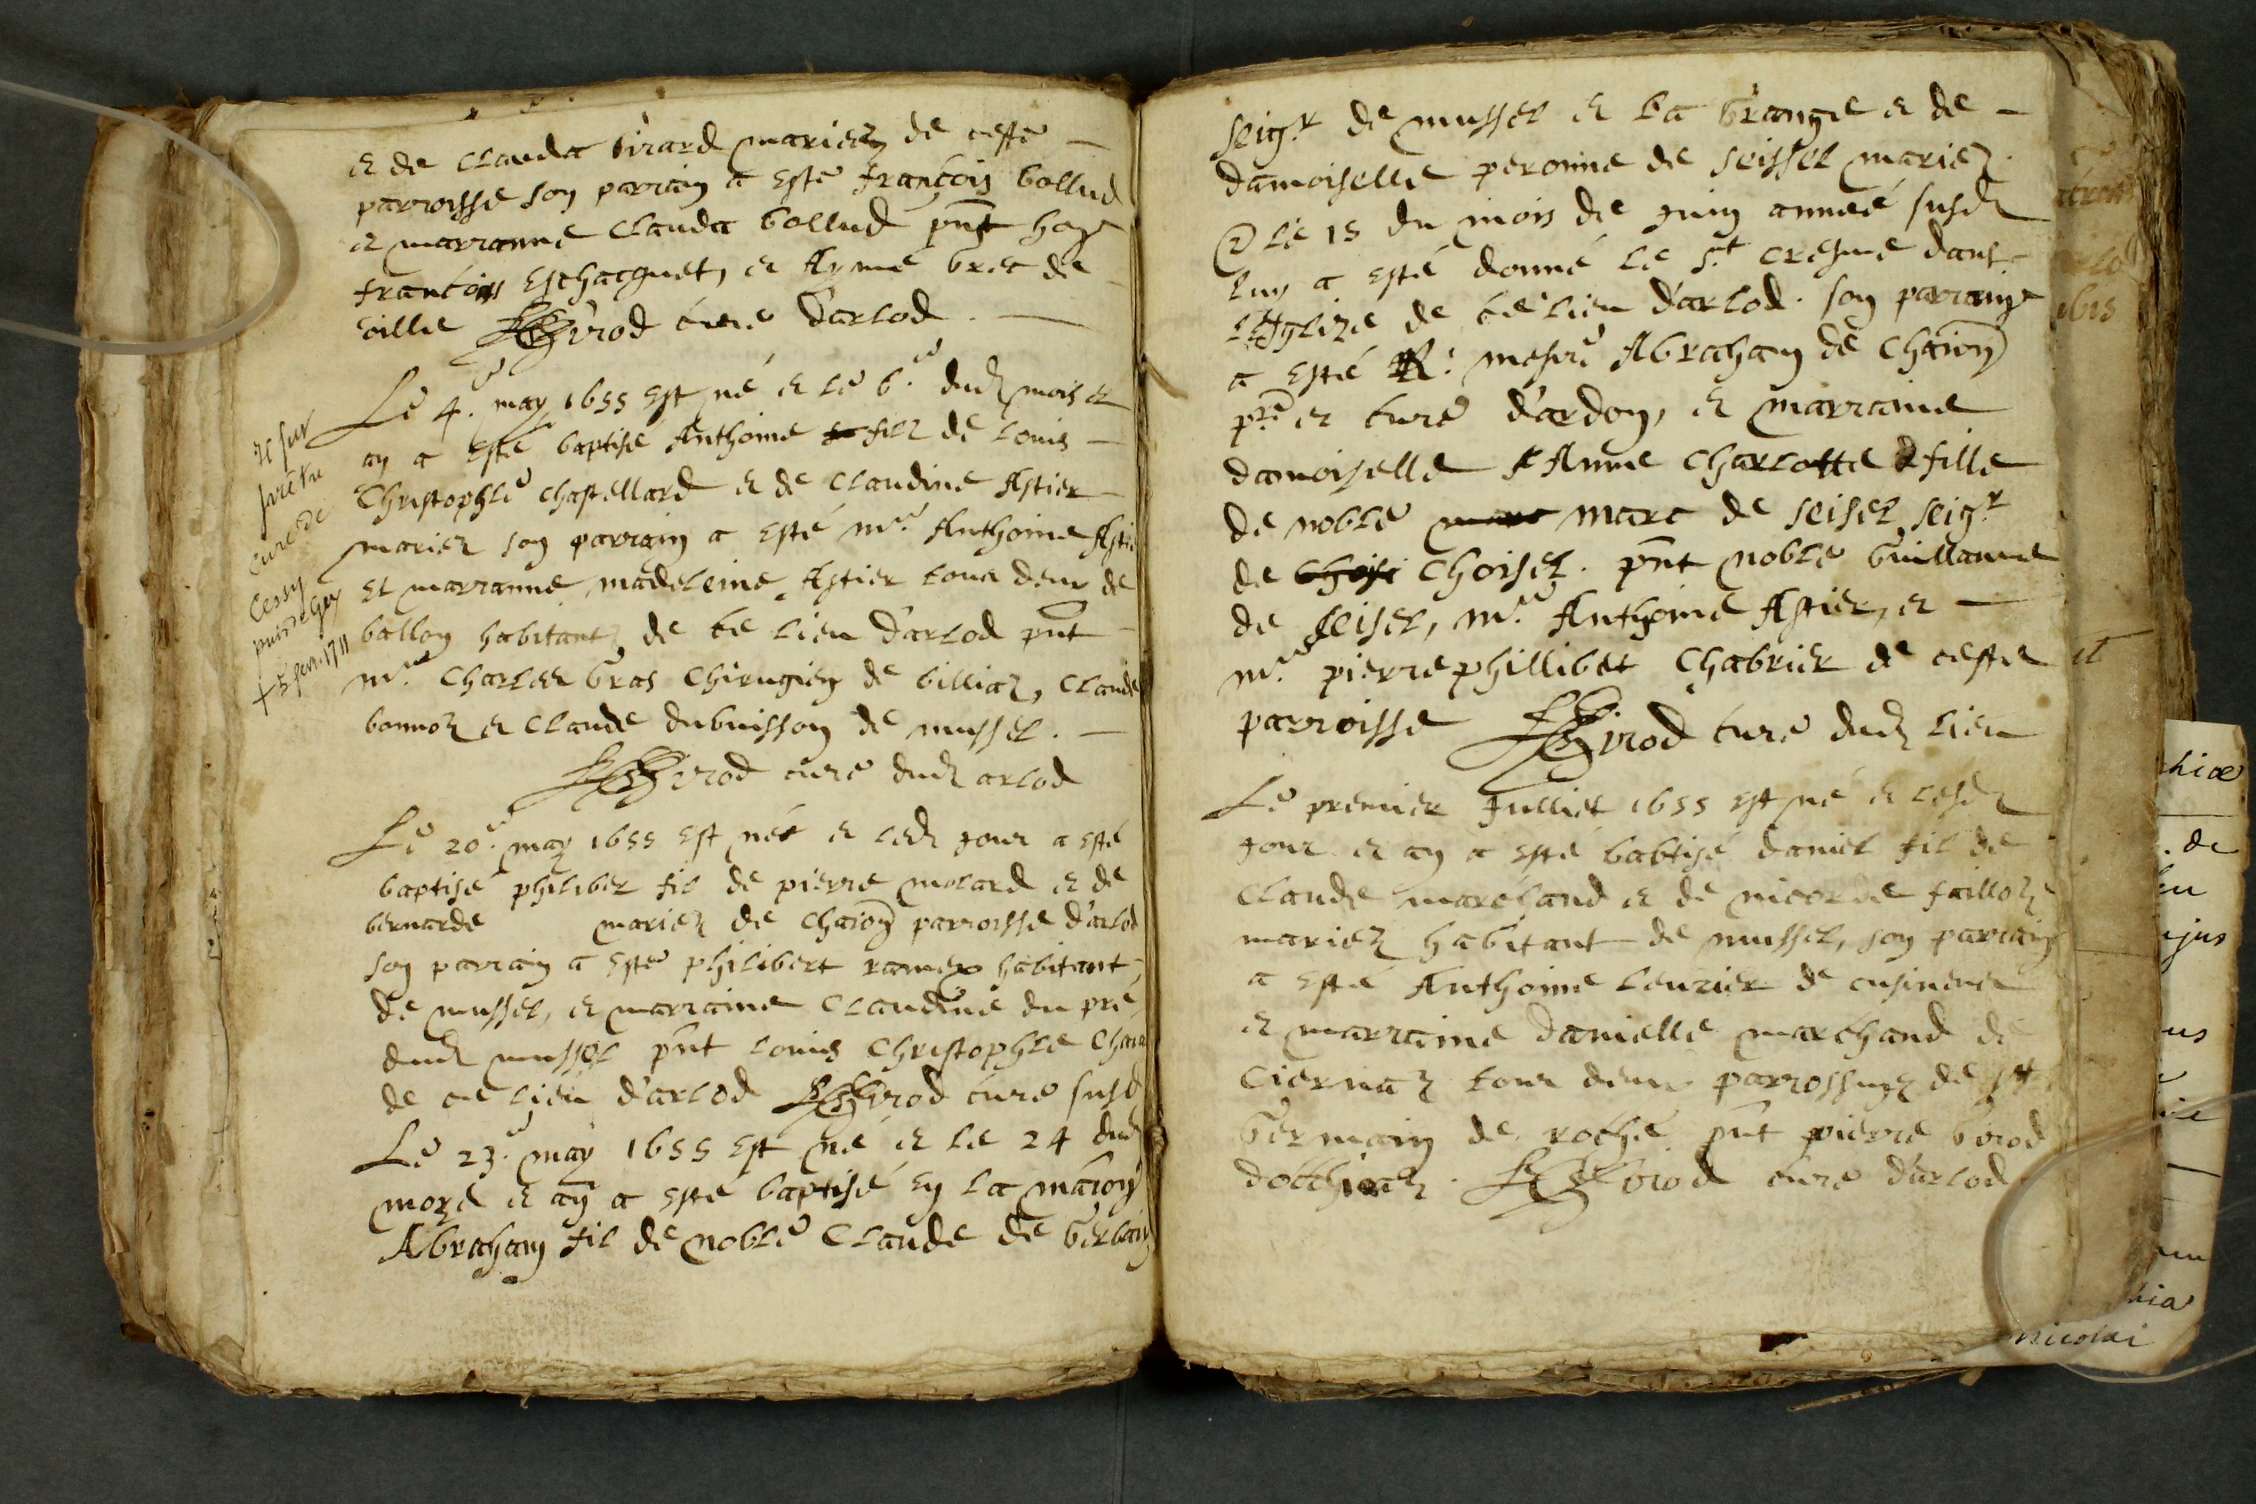 et de Clauda Girard mariez de ceste
parroisse son parrain a esté françois bollud
et marranne Clauda bollud pnt hoz
françois Eschaquet, et Aymé brec de
ville Girod curé d'arlod
Le 4e may 1655 est né et le 6e dud mois et
an a esté baptisé Anthoine filz de Louis
Christophle Chastellard et de Claudine Astier
mariez son parrain a esté mre Anthoine Astier
et marranne madeleine Astier tous deux de
ballon habitantz de ce lieu d'arlod pnt
mre Charles Gras Chirugien de billiaz, Claude
bonnoz et Claude dubuisson de mussel.
Girod curé dud arlod
il fut
prêtre
Curé de
Cessy
puis de Gex
+ 5 fevr. 1711
Le 20e may 1655 est né et led jour a esté
baptisé philiber fil de pierre molard et de
bernarde mariez de Chaion parroisse d'arlod
son parrain a esté philibert ramex habitant
de mussel, et marraine Claudine du pré
dud mussel pnt Louis Christophle Chas
de ce lieu d'arlod Girod curé susd
Le 23e may 1655 est né et le 24 dud
moys et an a esté baptisé en la maison
Abraham fil de noble Claude de Gerbais
seigr de mussel et la Grange et de
damoiselle peronne de seissel mariez.
Le 15 du mois de juin anneé susd
luy a esté donné le st cresme dans
l'Eglize de ce lieu d'arlod. son parrain
a esté R. messre Abraham de Chaion
pre et curé d'ardon, et marraine
damoiselle Anne Charlotte fille
de noble marc marc de seisel seigr
de Choisi Choisel. pnt noble Guillaume
de seisel, mre Anthoine Astier, et
mre pierre phillibet Chabrier de ceste
parroisse Girod curé dud lieu
Le premier Julliet 1655 est né et lesd
jour et an a esté babtisé daniel fil de
Claude marchand et de nicorde
mariez habitant de mussel, son parrain
a esté Anthoine leurier de cusinens
et marraine danielle marchand de
Ciernaz tous deux parrossiens de St
Germain de, roche pnt pierre Girod
Girod curé d'arlod
ibis
et
hiæ
. de
eu
ujus
us
hia
nicolai